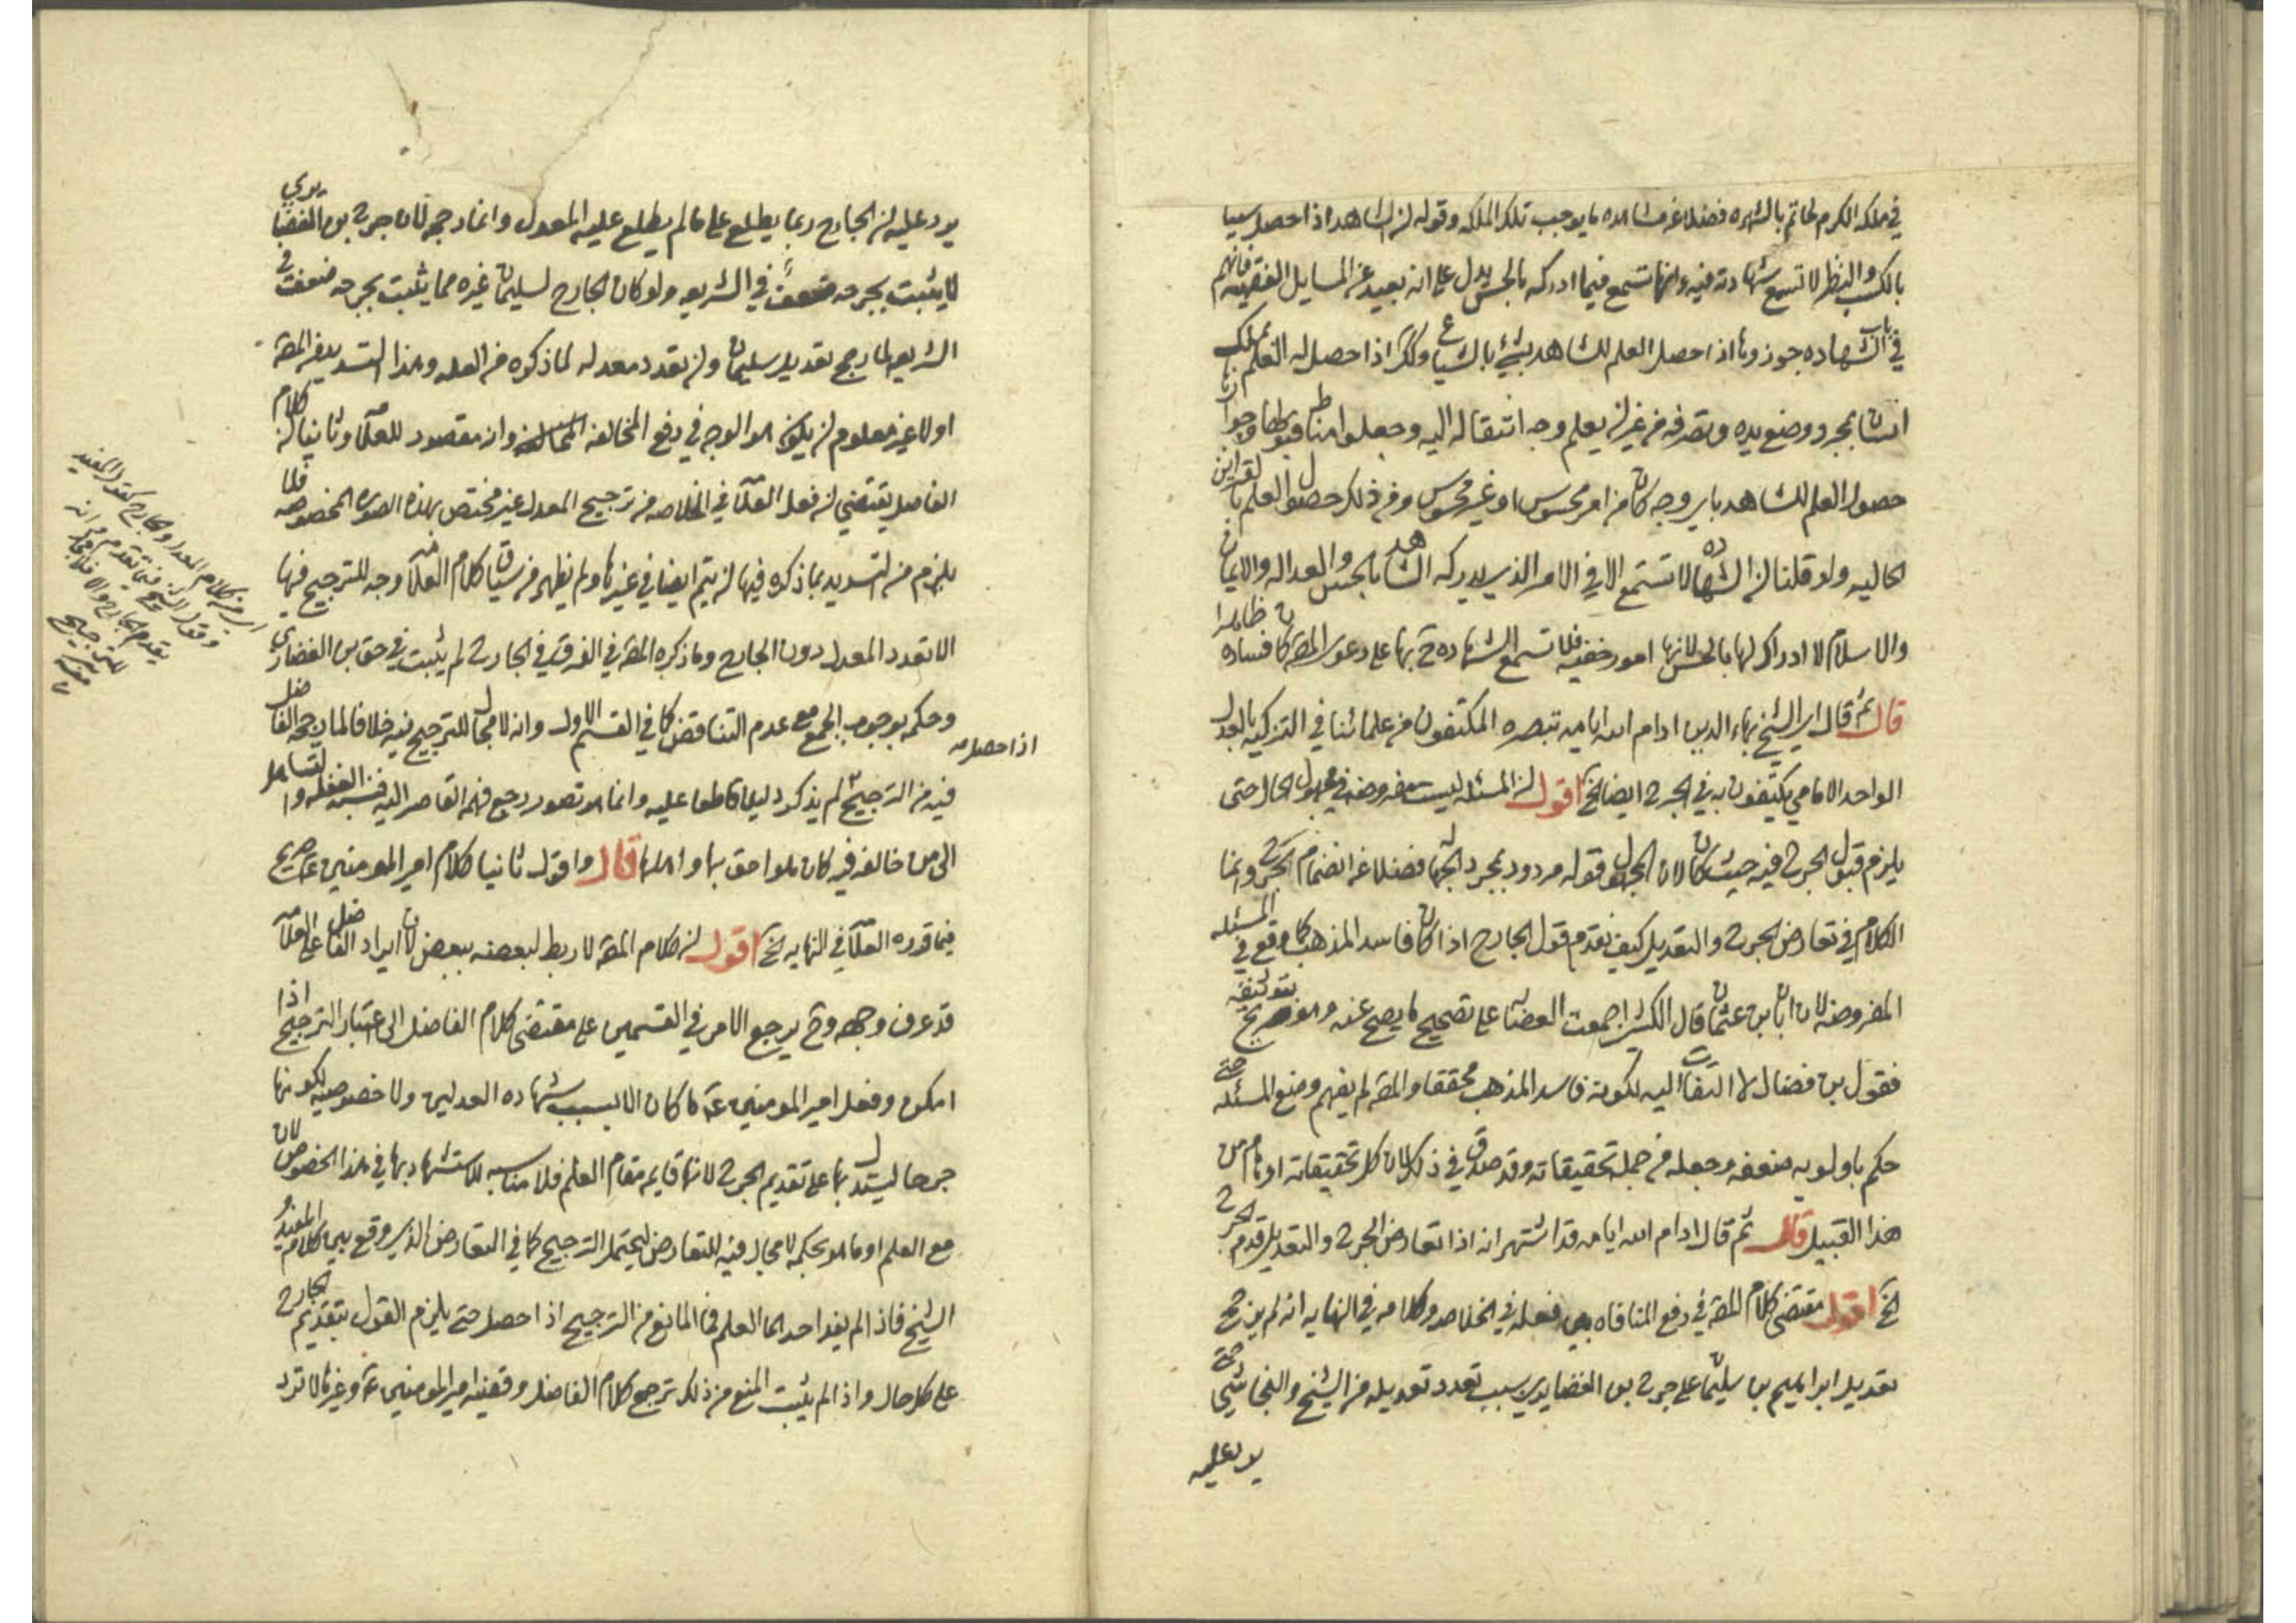 في ملكه الكرم لحاتم بالشهره فضلا عن مشاهده ما يوجب تلك الملكه وقوله لن الشاهد اذا حصل سببا
بالكسب والنظر لا تسمع شهادته فيه وانها تسمع فيما ادركه بالحس يدل على انه بعيد عن المسايل الفقهيه فانهم
في باب الشهاده جوزوها اذا حصل العلم للشاهد بشئ بالشياع ولكن اذا حصل له العلم بملك
انسان بمجرد وضع يده وتصرفه من غير لن يعلم وجه انتقاله اليه وجعلوا مناط قبولها وجوازها
حصول العلم للشاهد باي وجه كان من امر محسوس او غير محسوس ومن ذلك حصول العلم بالقراين
الحاليه ولو قلنا لن الشهاده لا تستمع الا في الامر الذي يدركه الشاهد بالحس والعداله والايمان
والاسلام لا ادراك لها بالحس لانها امور خفيه فلا تسمع الشهاده ح بها على دعوى المصه كان فساده ظاهرا
قال ثم قال اي الشيخ بهاء الدين ادام الله ايامه تبصره المكتفون من علمائنا في التزكيه بالعدل
الواحد الامامي يكتفون به في الجرح ايضا الخ اقول لن المسئله ليست مفروضه في مجهول الحال حتى
يلزم قبول الجرح فيه حيث كان لان المجهول قوله مردود بمجرد الجهاله فضلا عن انضمام الجرح وانما
الكلام في تعارض الجرح والتعديل كيف يقدم قول الجارح اذا كان فاسد المذهب كما وقع في المسئله
المفروضه لان ابان بن عثمان قال الكشي اجمعت العصابه على تصحيح ما يصح عنه وهو صريح بتوثيقه
فقول بن فضال لا التفات اليه لكونه فاسد المذهب محققا والمصه لم يفهم وضع المسئله حتى
حكم باولويه ضعفه وجعله من جمله تحقيقاته وقد صدق في ذلك لان كل تحقيقاته اوهام من
هذا القبيل قال ثم قال ادام الله ايامه قد اشتهر انه اذا تعارض الجرح والتعديل قدم الجرح
الخ اقول مقتضى كلام المصه في دفع المنافاه بين فعله في الخلاصه وكلامه في النهايه انه لم يرجح
تعديل ابراهيم بن سليمان على جرح بن الغضايري بسبب تعدد تعديله من الشيخ والنجاشي حتى
يرد عليه
يرد عليه لن الجارح ربما يطلع على ما لم يطلع عليه المعدل وانما رجحه لان جرح بن الغضايري
لا يثبت بجرحه ضعف في الشريعه ولو كان الجارح لسليمان غيره مما يثبت بجرحه ضعف في
الشريعه لما رجح تعديل سليمان ولن تعدد معدله لما ذكره من العله وهذا التسديد من المصه
اولا غير معلوم لن يكون هو الوجه في دفع المخالفه وانه مقصود للعلامه وثانيا لن كلام
الفاضل يقتضي لن فعل العلامه في الخلاصه من ترجيح المعدل غير مختص بهذه الصوره المخصوصه فلا
يلزم من التسديد بما ذكره فيها لن يتم ايضا في غيرها ولم يظهر من سياق كلام العلامه وجه للترجيح فيها
الا تعدد المعدل دون الجارح وما ذكره المصه في الفرق في الجارح لم يثبت في حق بن الغضاري
وحكمه بوجوب الجمع مع عدم التناقض كما في القسم الاول وانه لا مجال للترجيح فيه خلافا لما يرجحه الفاضل
فيه من الترجيح لم يذكر دليلا قاطعا عليه وانما هو تصور رجع فهمه القاصر اليه فنسب الغفله والتساهل
الى من خالفه فيه كان هو احق بها واهلها قال واقول ثانيا كلام امير المومنين ع صريح
فيما قدره العلامه في النهايه الخ اقول لن كلام المصه لا ربط لبعضه ببعض لان ايراد الفاضل على العلامه
قد عرف وجهه وح يرجع الامر في القسمين على مقتضى كلام الفاضل الى اعتبار الترجيح اذا
امكن وفعل امير المومنين ع ما كان الا بسبب شهاده العدلين ولا خصوصيه لكونها
جرحا ليستدل بها على تقديم الجرح لانها قايمه مقام العلم فلا مناسبه للاستشهاد بها في هذا الخصوص لان
مع العلم او ما هو بحكمه لا مجال فيه للتعارض ليحتمل الترجيح كما في التعارض الذي وقع بين كلام المفيد و
الشيخ فاذا لم يفد احدهما العلم فما المانع من الترجيح اذا حصل حتى يلزم القول بتقديم الجارح
على كل حال واذا لم يثبت المنع من ذلك ترجح كلام الفاضل وقضيه امير المومنين ع وغيرها لا ترد
اذا حصل مه
اي من كلام المعدل والجارح كقول المفيد
وقول الشيخ فيما تقدم من انه
يقدم الجارح والا فلا مجال
للترجيح